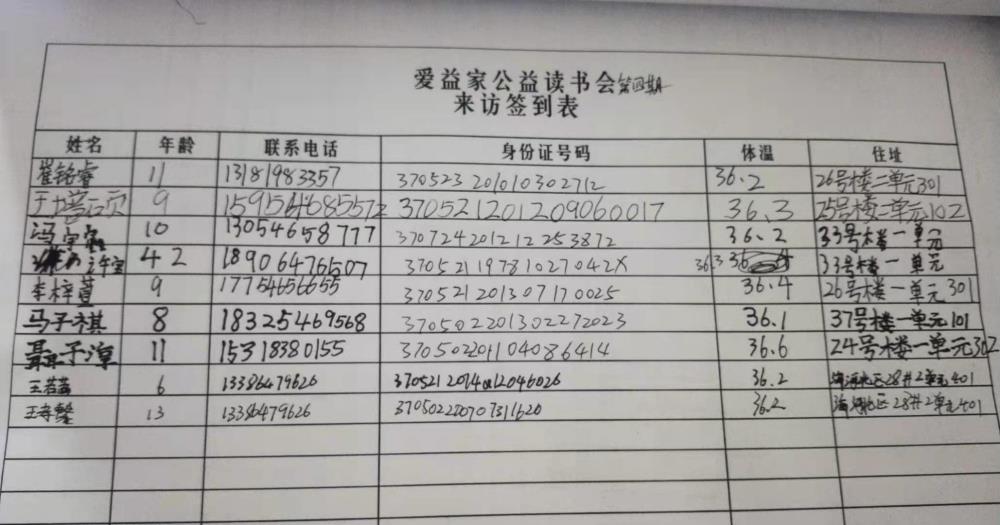 爱益家公益读书会第四期
来访签到表
姓名 年龄 联系电话 身份证号码 体温 住址
崔铭睿 11 13181983357 370523201010302712 36.2 26号楼二单元301
9 370521201209060017 36.3 25号楼二单元102
冯宇 10 13054658777 370724201212253872 36.2 33号楼一单元
42 18906476507 37052119781027042X 36.3 33号楼一单元
李梓萱 9 17754656655 370521201307170025 36.4 26号楼一单元301
马子祺 8 18325469568 370502201302272023 36.1 37号楼一单元101
聂子淳 11 15318380155 370502201104086414 36.6 24号楼一单元302
王若菡 6 13386479626 36.2 28井2单元401
13 13386479626 36.2 28井2单元401